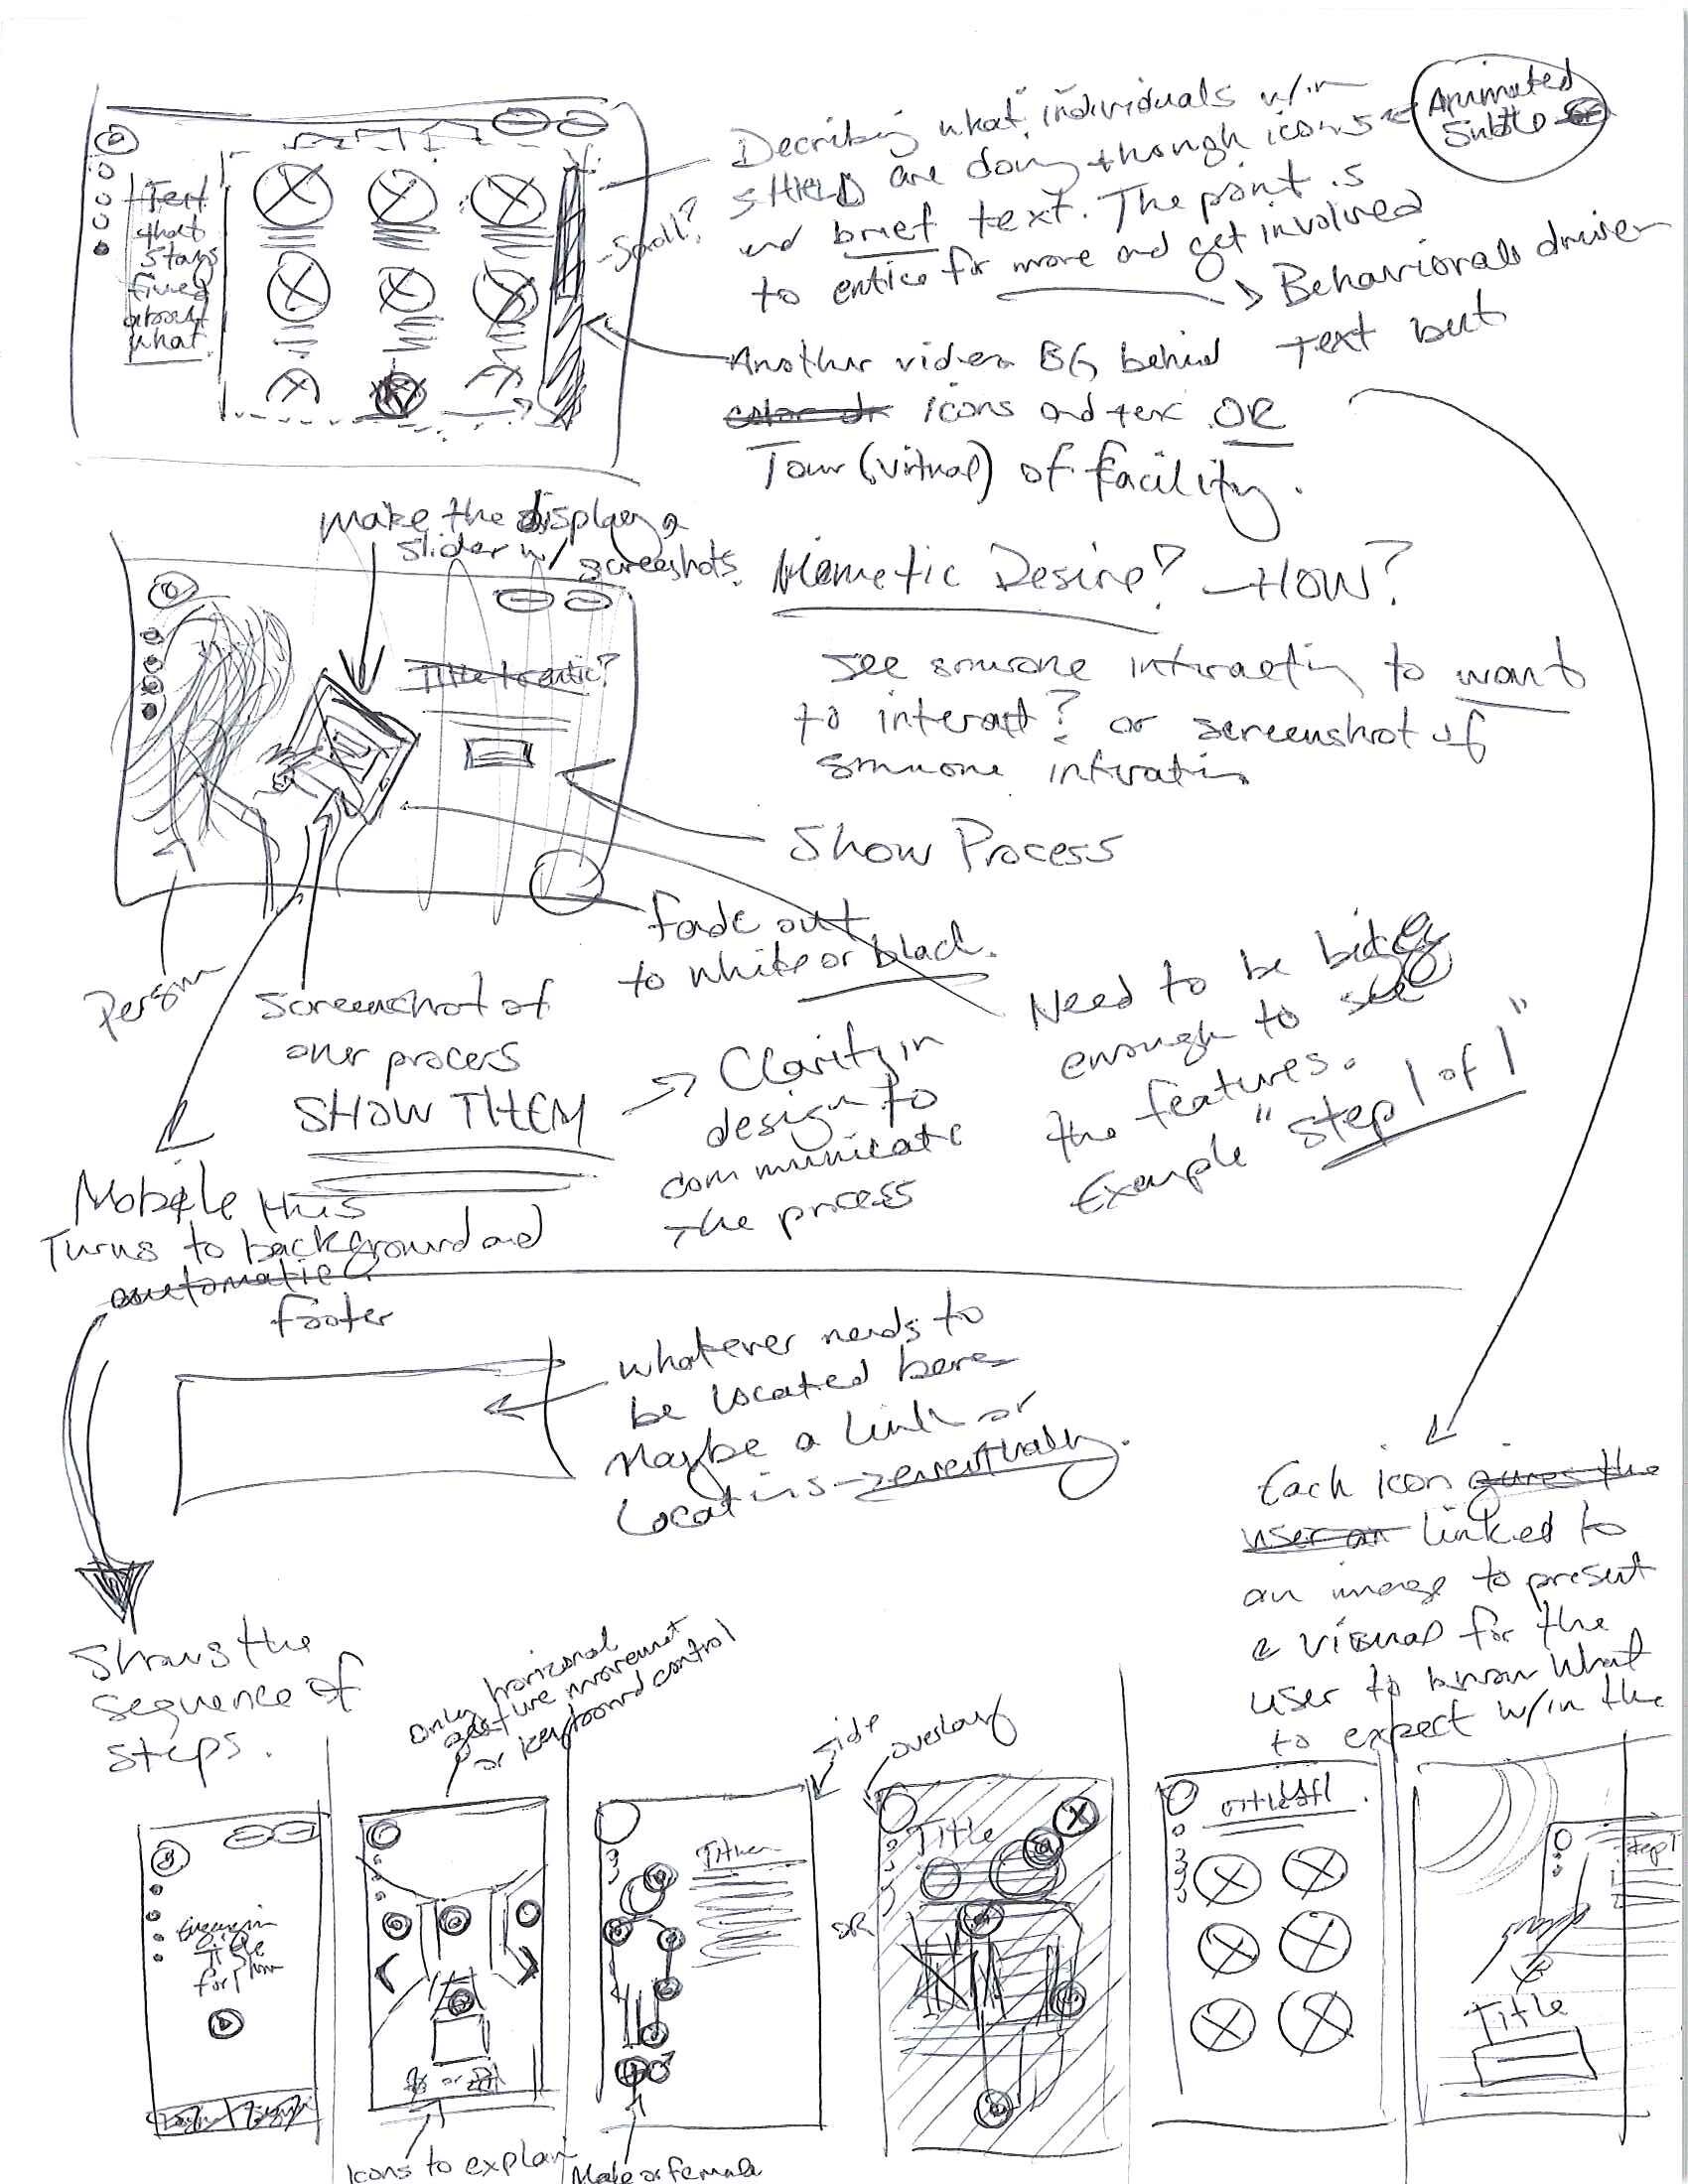 Decribing what individuals w/in
SHIELD are doing though icons
and brief text. The point is
to entice for more and get involved
Animated
Subtle
Behavioral driven
text but
Text
that
stays
fixed
about
what
Scroll?
Another video BG behind
icons and text OR
Tour (virtual) of facility.
make the display a
slider w/
screeshots.
Mametic Desire? HOW?
see somone interacting to want
to interact? or screenshot of
somone interating
Title
Show Process
fade out
to white or black.
Person
Screenshot of
our process
SHOW THEM
Clarity in
design to
communicate
the process
Need to be big
enough to see
the features.
Example "Step 1 of 1"
Mobile this
Turns to background and
automatic
footer
whatever needs to
be located here
Maybe a link or
Locatins eventually.
Each icon gives the
user an linked to
an image to present
a visual for the
user to know what
to expect w/in the
Shows the
sequence of
steps.
Only horizonal
gesture movement
or keyboard control
side
overlay
OR
Title
for
Title
Title
Title
Step 1
Title
Icons to explain
Male or female